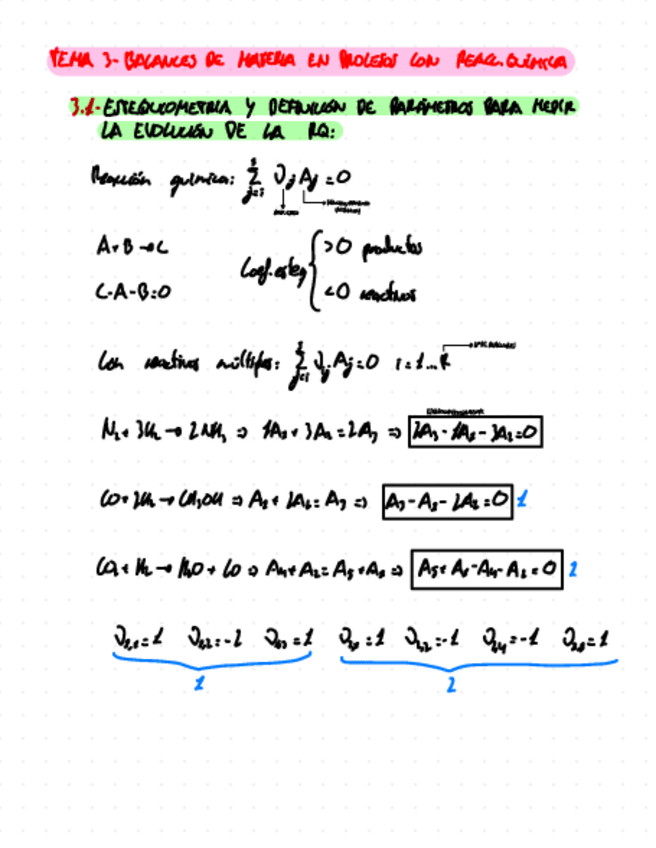 TEMA 3- BALANCES DE MATERIA EN PROCESOS CON REAC. QUÍMICA
3.1- ESTEQUIOMETRIA Y DEFINICIÓN DE PARÁMETROS PARA MEDIR
LA EVOLUCIÓN DE LA RQ:
Reacción química: Σ νj Aj = 0
A+B→C
C-A-B=0
Coef. esteq { >0 productos
<0 reactivos
Con reactivos múltiples: Σ νj Aj = 0 i=1...R
N2 + 3H2 → 2NH3 ⇒ 1A1 + 3A2 = 2A3 ⇒ 2A3 - 1A1 - 3A2 = 0
CO + 2H2 → CH3OH ⇒ A1 + 2A2 = A3 ⇒ A3 - A1 - 2A2 = 0 1
CO2 + H2 → H2O + CO ⇒ A4 + A2 = A5 + A1 ⇒ A5 + A1 - A4 - A2 = 0 2
ν1,2 = -2 ν1,3 = 1 ν2,2 = -1 ν2,4 = -1
1 2